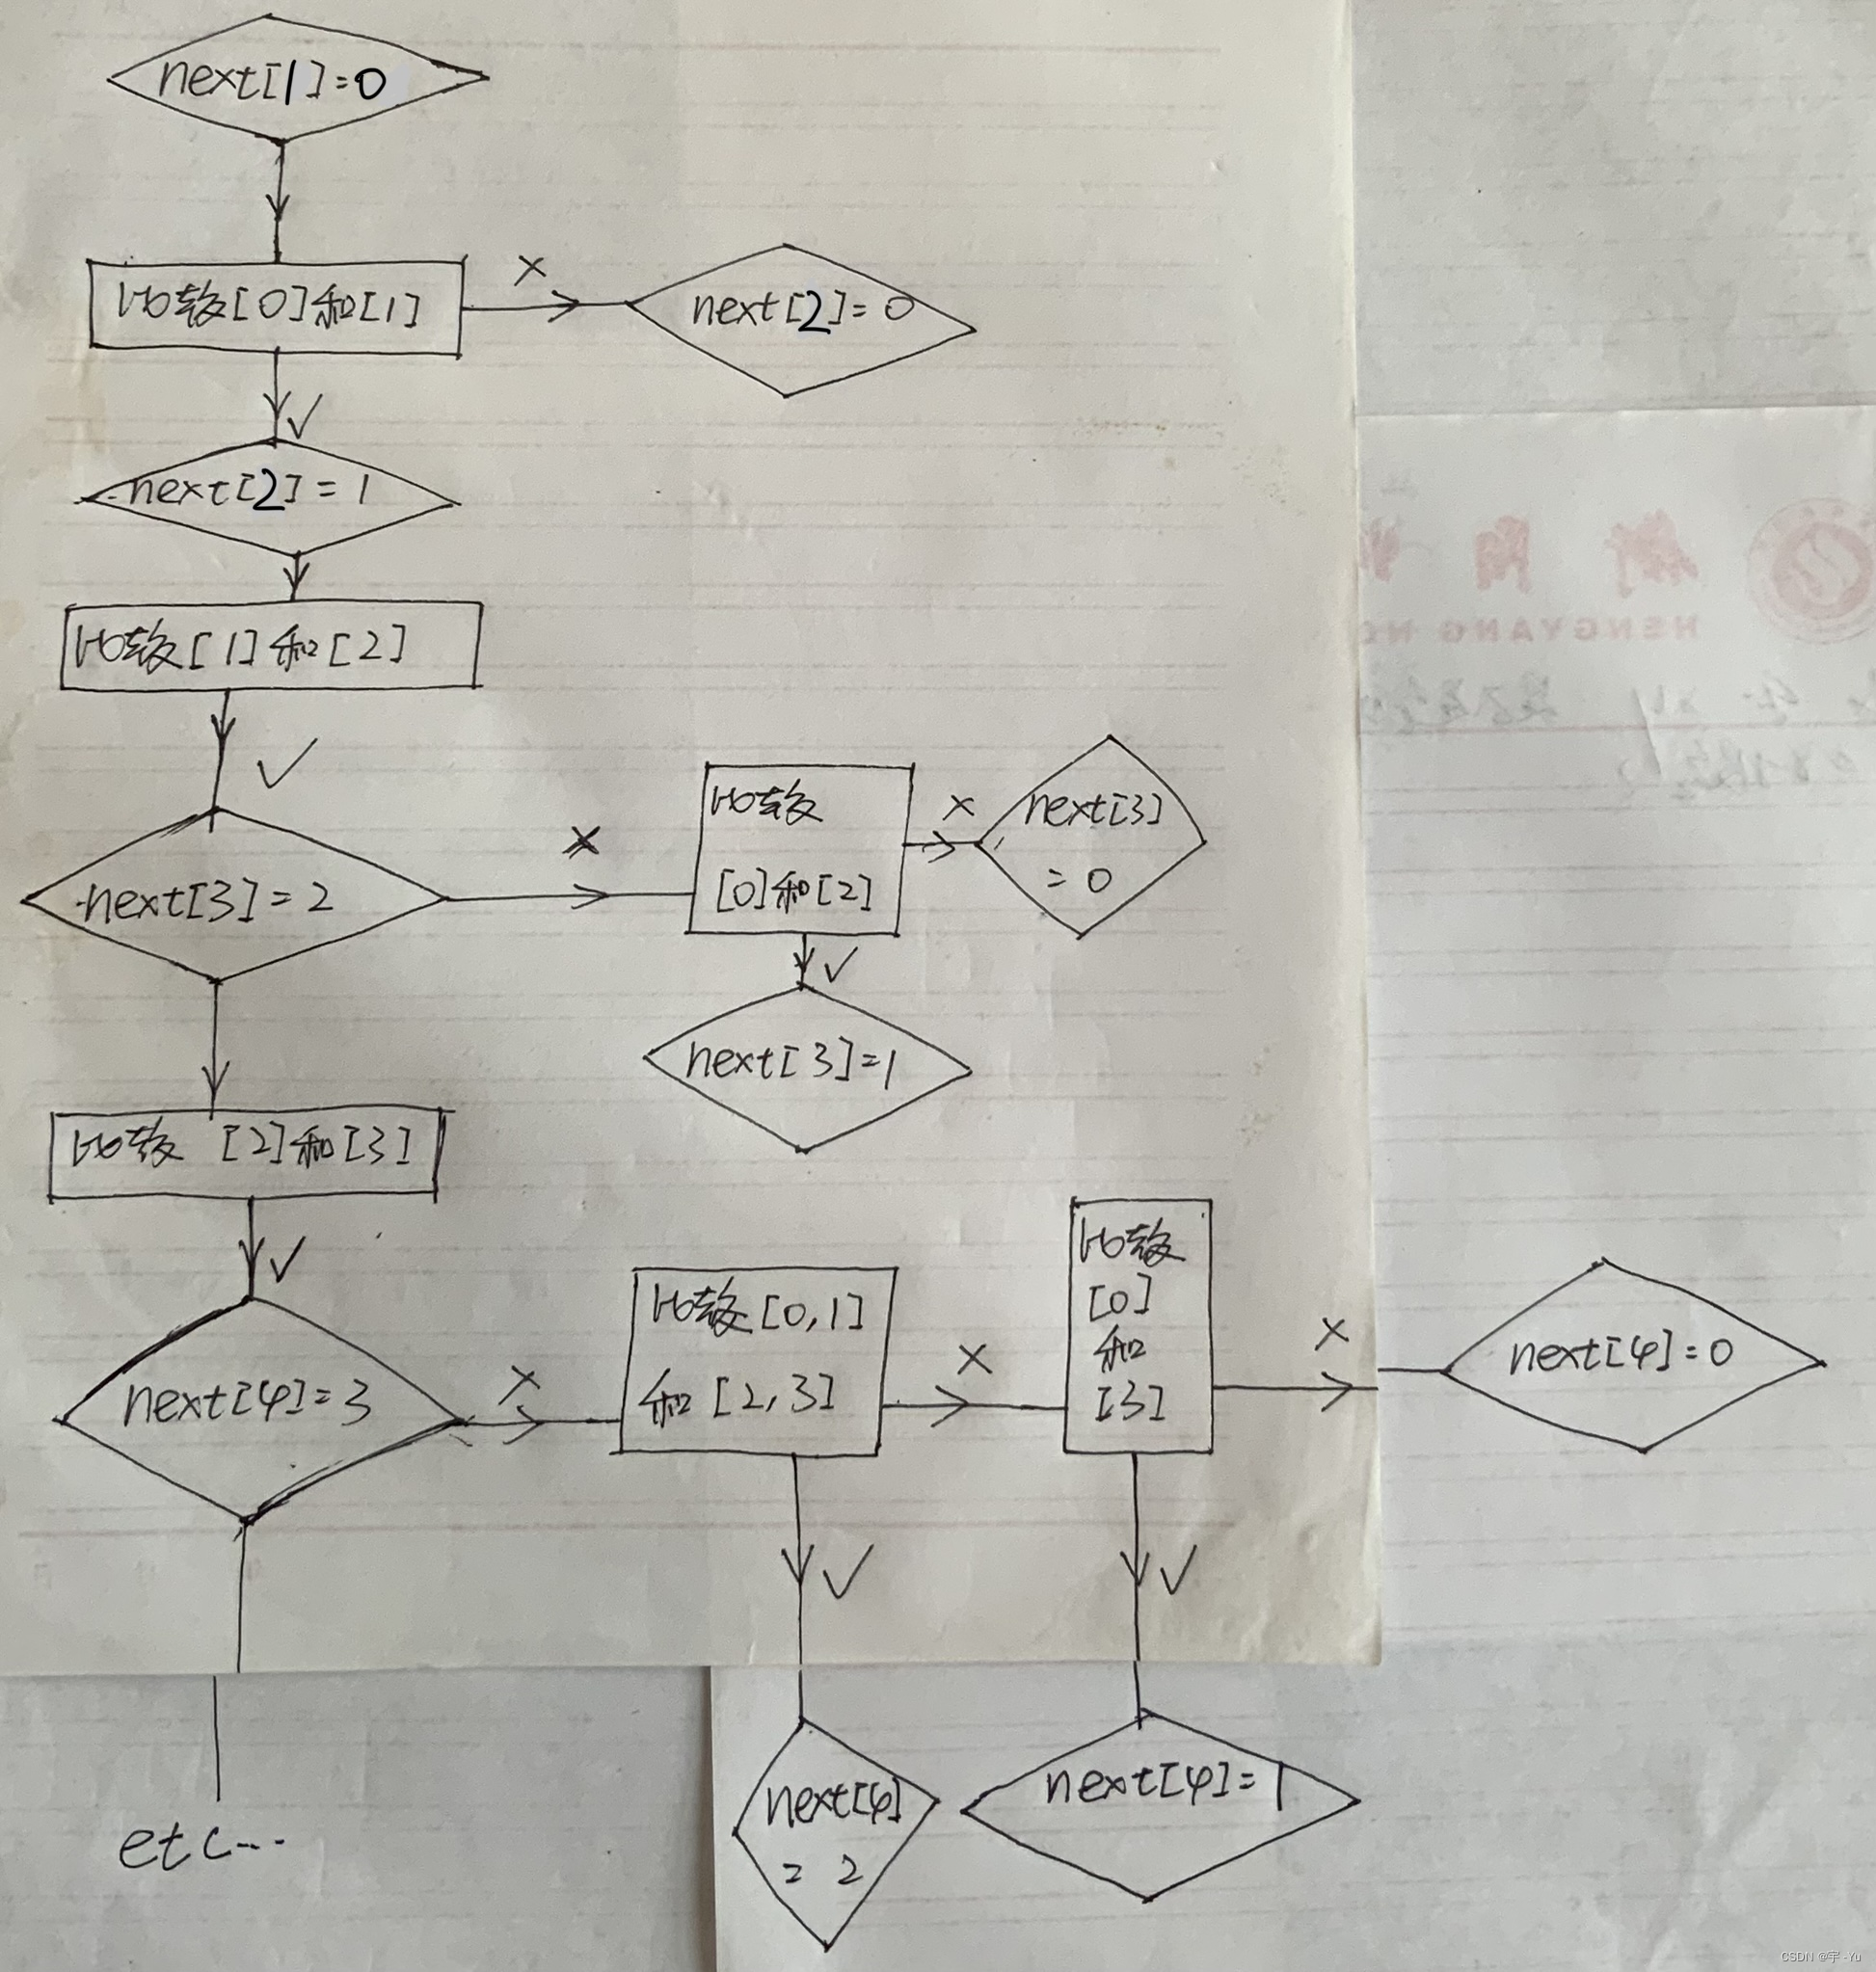 next[1]=0
比较[0]和[1]
×
next[2]=0
✓
next[2]=1
比较[1]和[2]
✓
next[3]=2
×
比较
[0]和[2]
×
next[3]
=0
✓
next[3]=1
比较 [2]和[3]
✓
next[4]=3
×
比较[0,1]
和[2,3]
×
比较
[0]
和
[3]
×
next[4]=0
✓
✓
next[4]
= 2
next[4]=1
etc...
衡 阳 师
HENGYANG NO
CSDN @宇-Yu